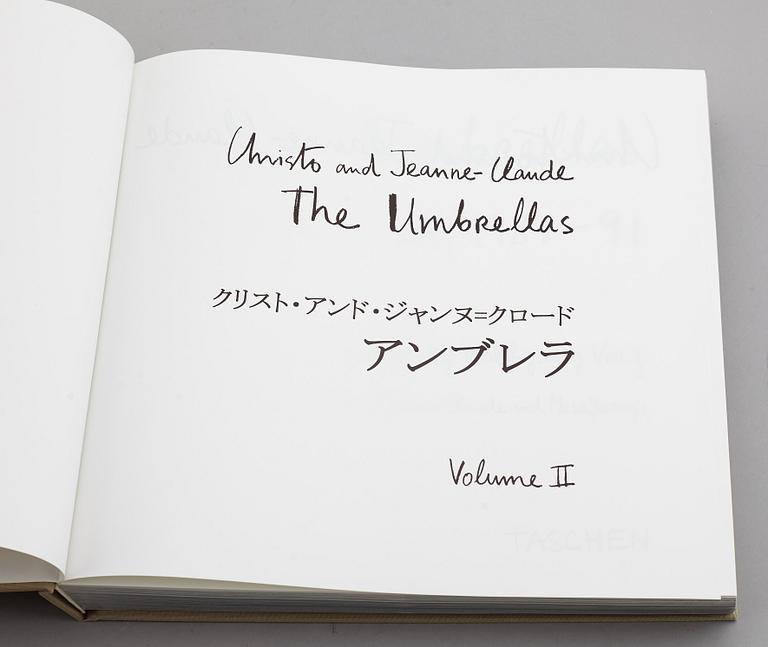 Christo and Jeanne-Claude
The Umbrellas
クリスト・アンド・ジャンヌ=クロード
アンブレラ
Volume II
TASCHEN